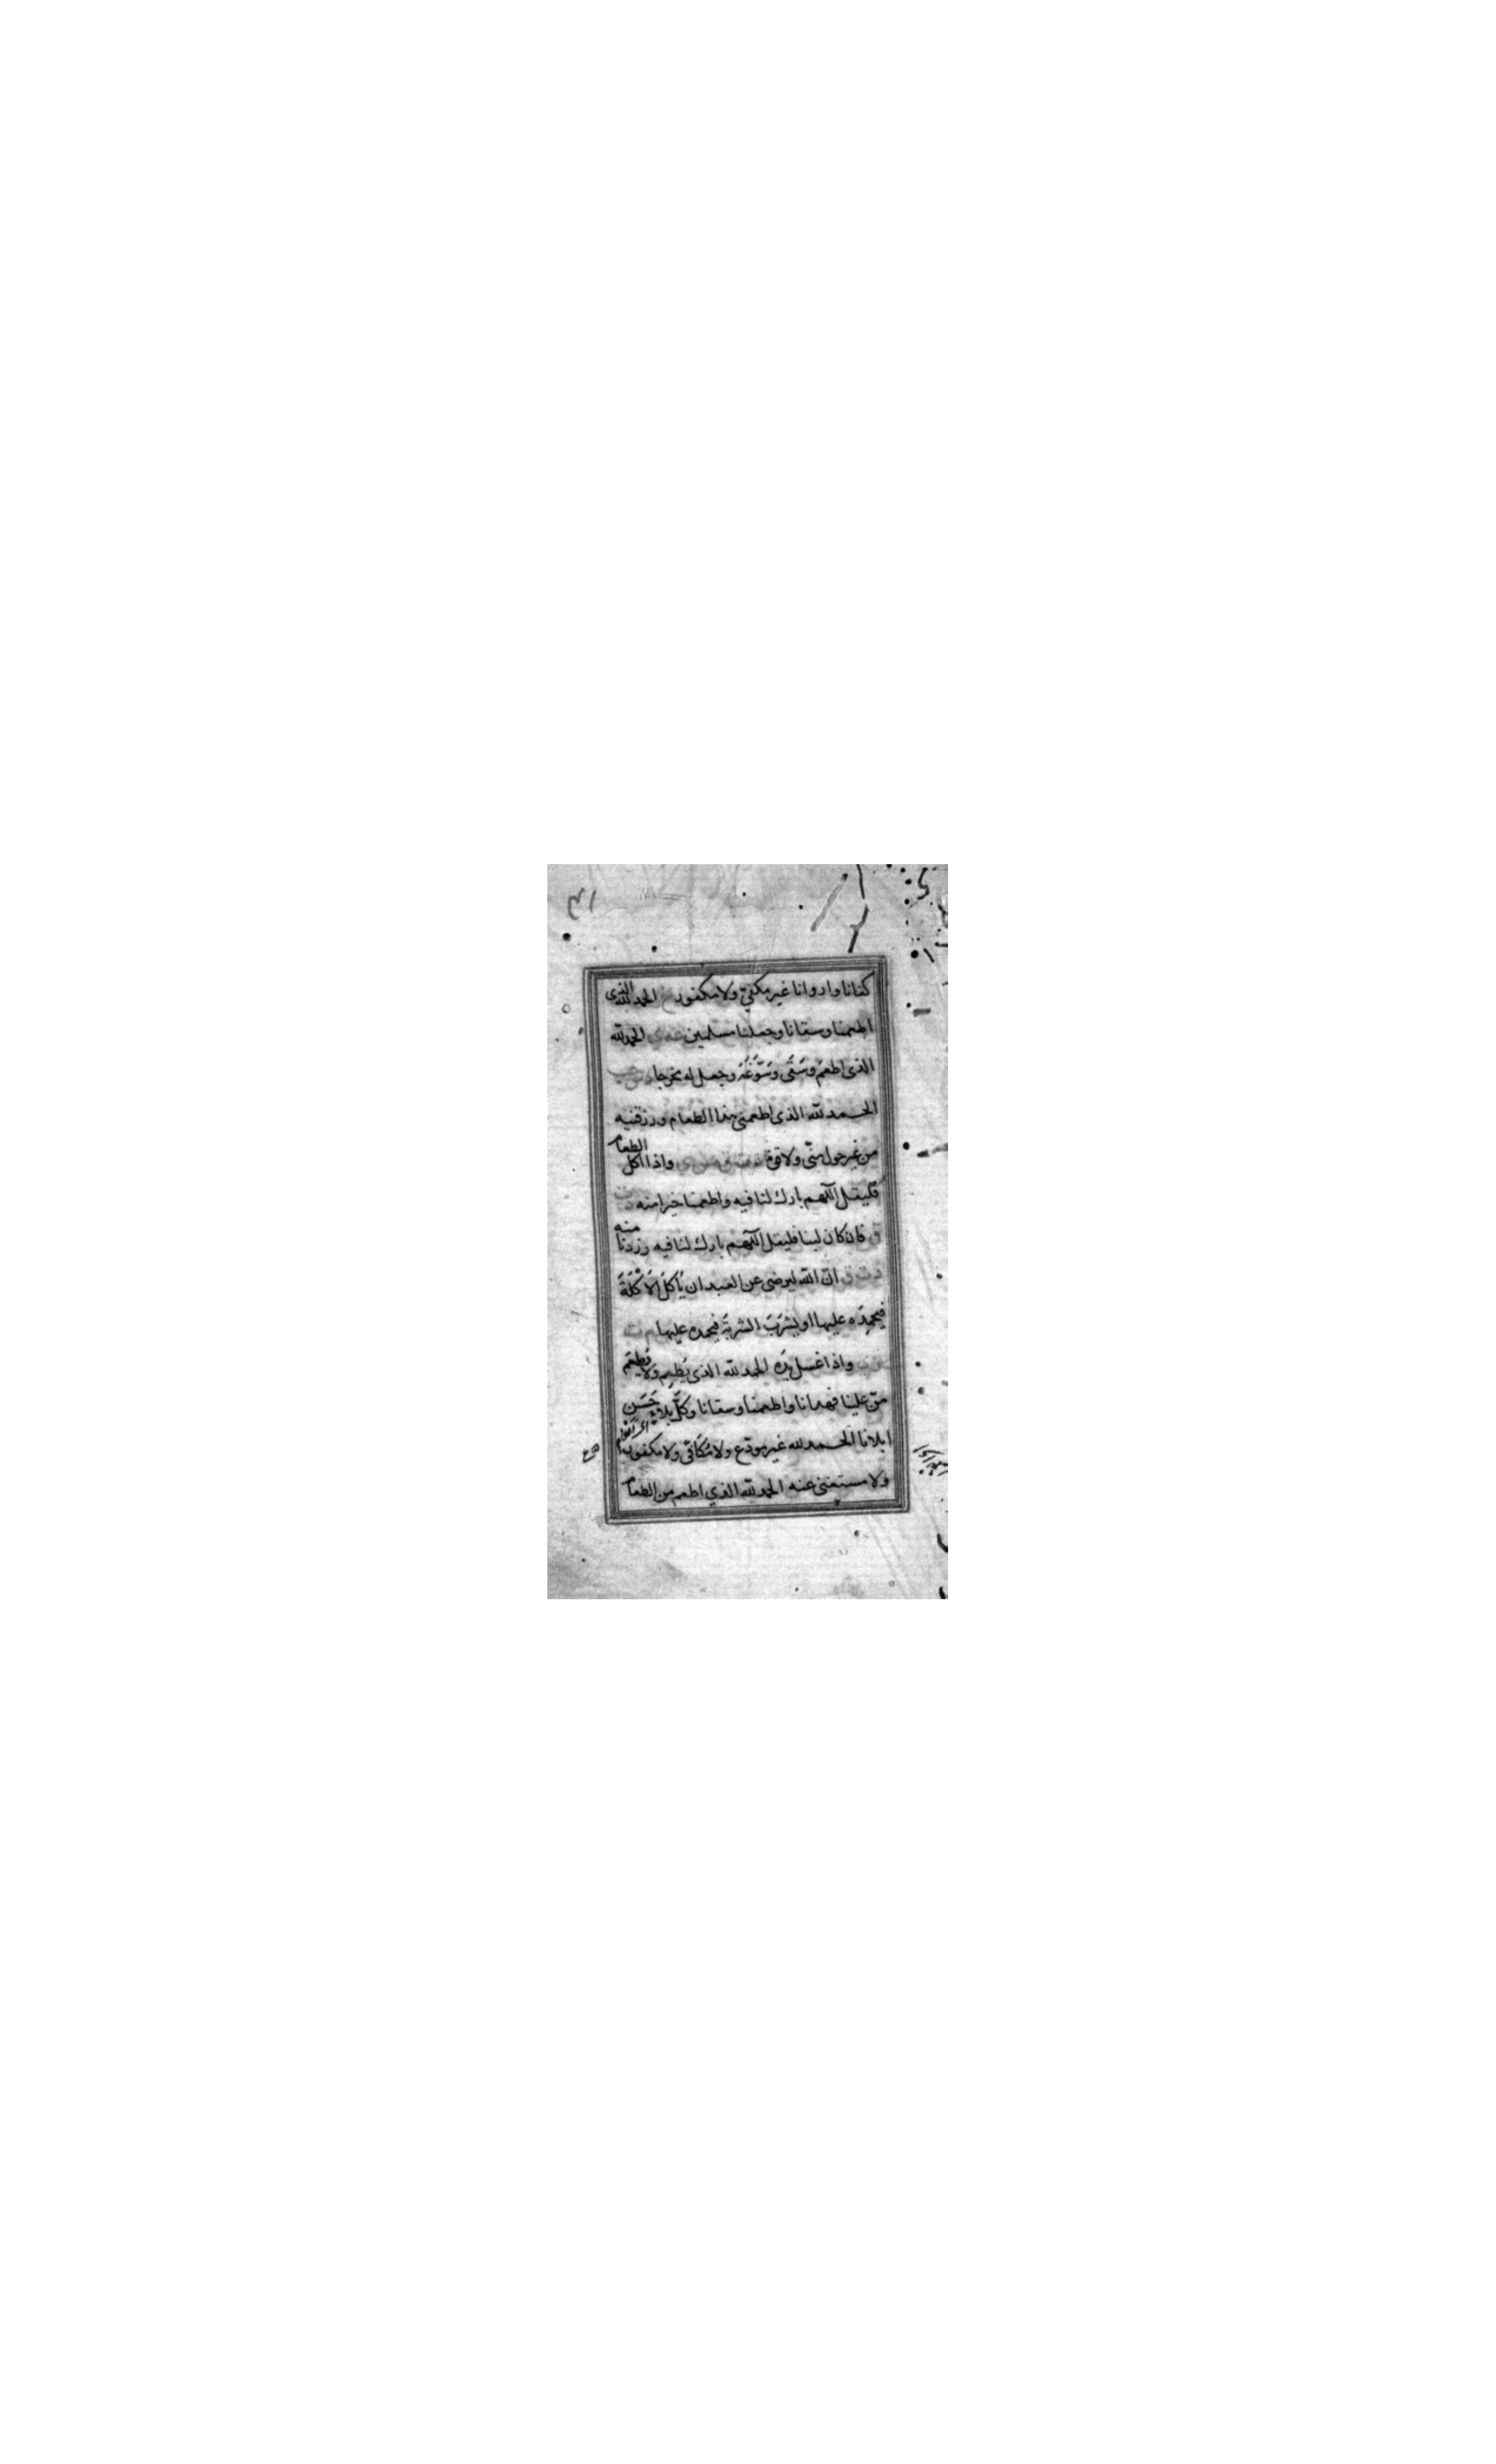 كفانا واروانا غير مكفيّ ولا مكفور خ الحمد لله الذى
اطعمنا وسقانا وجعلنا مسلمين عه ي الحمد لله
الذى اطعم وسَقَى وسَوَّغَهُ وجعل له مخرجا د س حب
الحمد لله الذى اطعمنى هذا الطعام ورزقنيه
من غير حول منّى ولا قوة واذا اكل الطعام
فليقل اللّهم بارك لنا فيه واطعمنا خيرا منه د ت
ق فان كان لبنا فليقل اللّهم بارك لنا فيه وزدنا منه
د ت ق انّ الله ليرضى عن العبد ان يأكل الاَكْلَةَ
فيحمدَه عليها او يشرَبَ الشربةَ فيحمده عليها م ت
واذا غسل يدَه الحمد لله الذى يُطْعِم ولا يُطعَم
منّ علينا فهدانا واطعمنا وسقانا وكلَّ بلاءٍ حَسَنٍ
ابلانا الحمد لله غير مودّع ولا مُكَافًى ولا مكفور
ولا مستغنى عنه الحمد لله الذي اطعم من الطعام